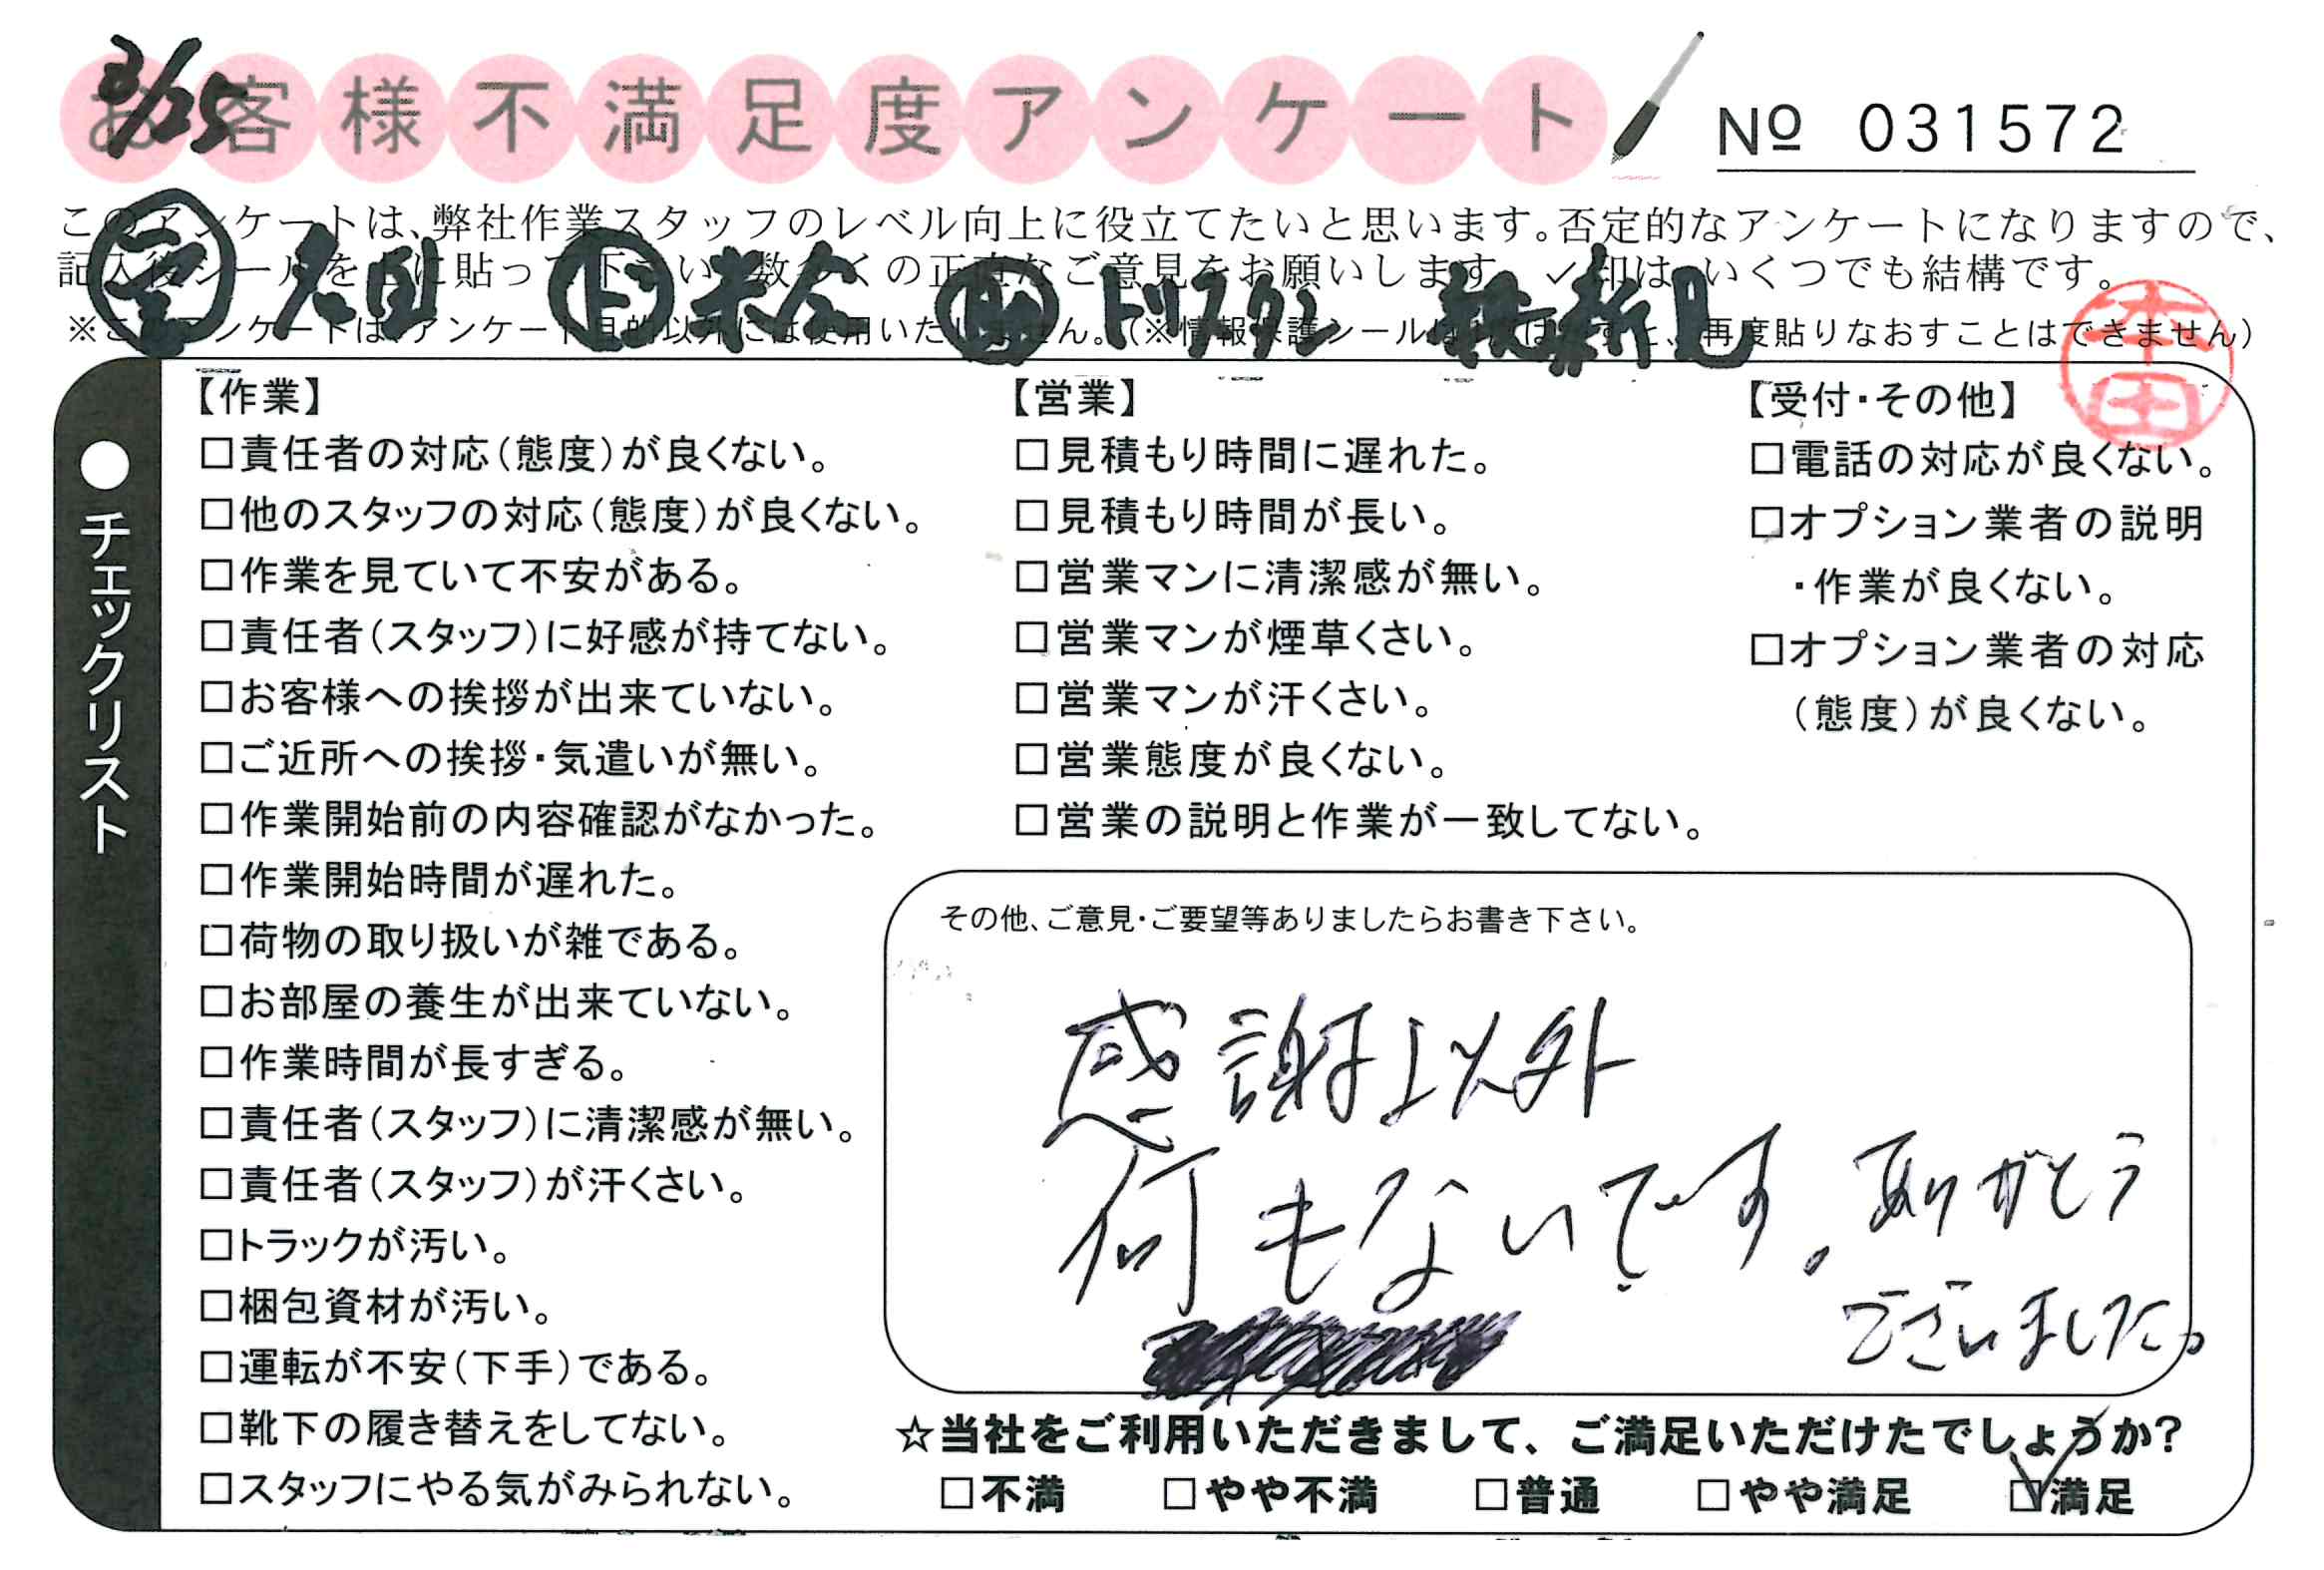 3/25
お客様不満足度アンケート
№ 031572
このアンケートは、弊社作業スタッフのレベル向上に役立てたいと思います。否定的なアンケートになりますので、
記入後シールを上に貼って下さい。数多くの正直なご意見をお願いします。✓印は、いくつでも結構です。
久田 ド 米谷 助 トリスタン 新見
※このアンケートは、アンケート目的以外には使用いたしません。(※情報保護シールは 再度貼りなおすことはできません)
本田
●チェックリスト
【作業】
□責任者の対応(態度)が良くない。
□他のスタッフの対応(態度)が良くない。
□作業を見ていて不安がある。
□責任者(スタッフ)に好感が持てない。
□お客様への挨拶が出来ていない。
□ご近所への挨拶・気遣いが無い。
□作業開始前の内容確認がなかった。
□作業開始時間が遅れた。
□荷物の取り扱いが雑である。
□お部屋の養生が出来ていない。
□作業時間が長すぎる。
□責任者(スタッフ)に清潔感が無い。
□責任者(スタッフ)が汗くさい。
□トラックが汚い。
□梱包資材が汚い。
□運転が不安(下手)である。
□靴下の履き替えをしてない。
□スタッフにやる気がみられない。
【営業】
□見積もり時間に遅れた。
□見積もり時間が長い。
□営業マンに清潔感が無い。
□営業マンが煙草くさい。
□営業マンが汗くさい。
□営業態度が良くない。
□営業の説明と作業が一致してない。
【受付・その他】
□電話の対応が良くない。
□オプション業者の説明
・作業が良くない。
□オプション業者の対応
(態度)が良くない。
その他、ご意見・ご要望等ありましたらお書き下さい。
感謝以外
何もないです。ありがとう
ございました。
☆当社をご利用いただきまして、ご満足いただけたでしょうか?
□不満 □やや不満 □普通 □やや満足 ☑満足